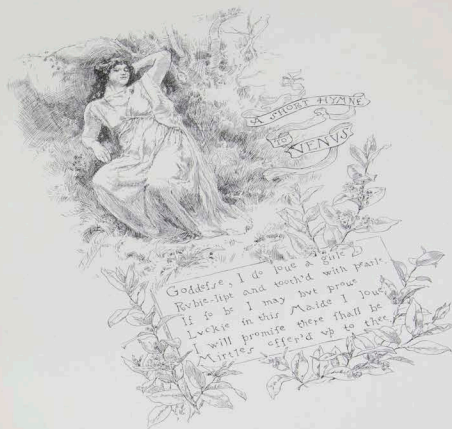 A SHORT HYMNE
TO VENUS
Goddesse, I do loue a girle
Rubie-lipt and tooth'd with pearle
If so be I may but proue
Luckie in this Maide I loue
I will promise there shall be
Mirtles offer'd vp to thee